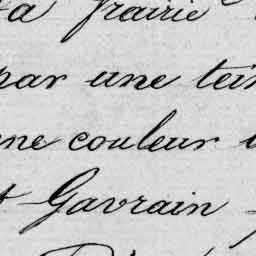 la prairie
par une tein
une couleur
t Gavrain